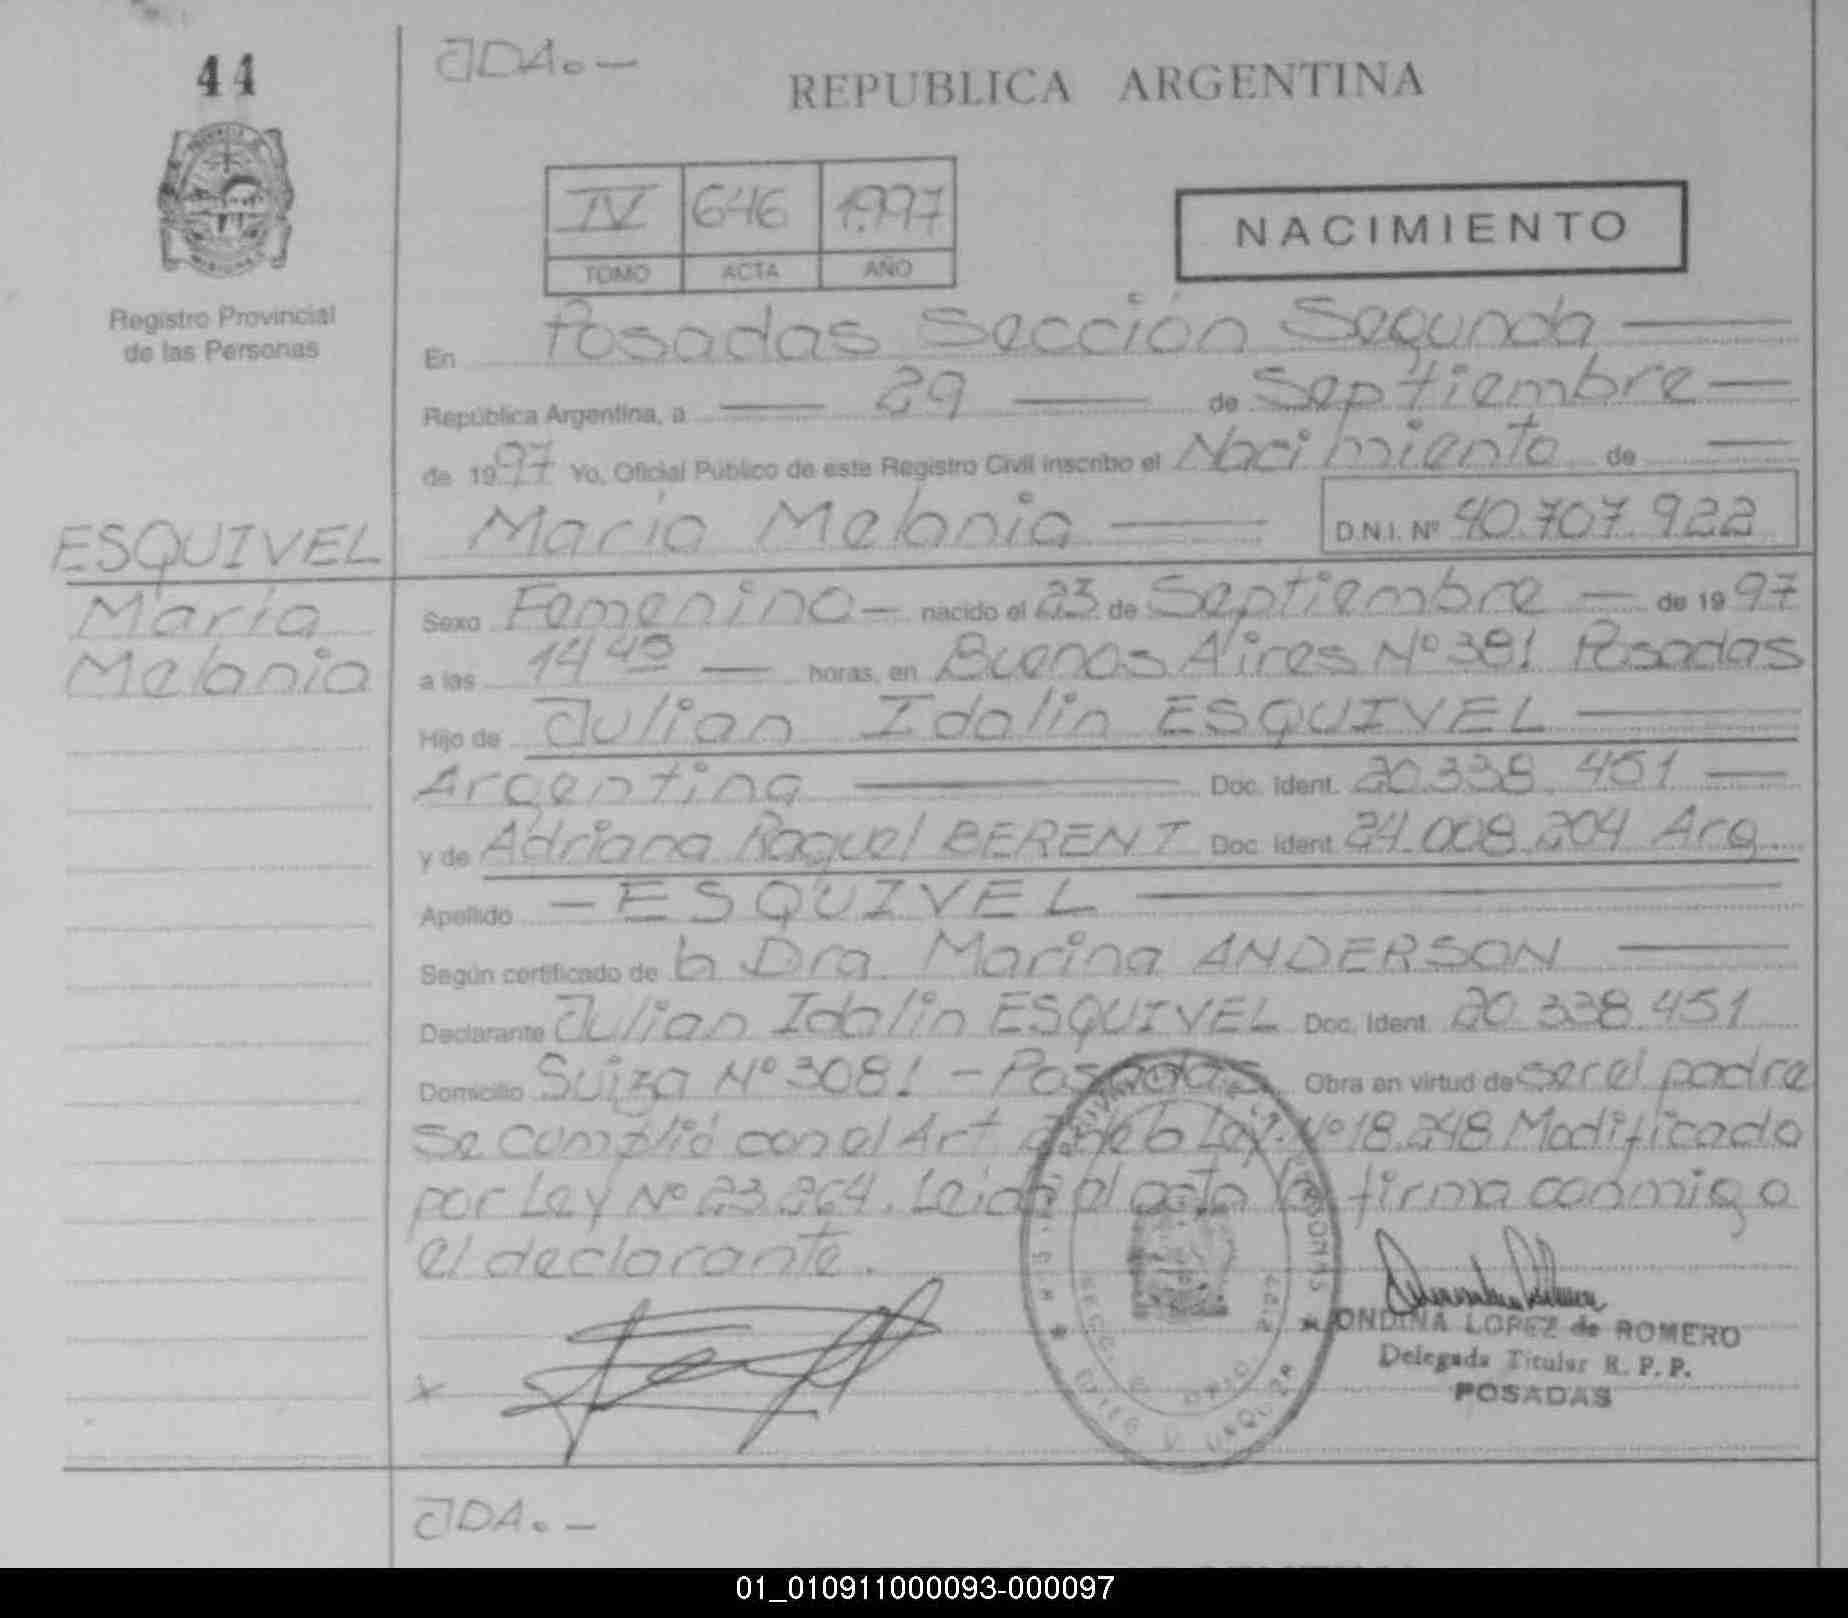 44
JDA.-
REPUBLICA ARGENTINA
IV 646 1.997
TOMO ACTA AÑO
NACIMIENTO
Registro Provincial
de las Personas
En Posadas Sección Segunda
República Argentina, a 29 de Septiembre
de 1997 Yo, Oficial Público de este Registro Civil inscribo el Nacimiento de
María Melania D.N.I. Nº 40.707.922
ESQUIVEL
María
Melania
Sexo Femenino nacido el 23 de Septiembre de 1997
a las 14 45 horas, en Buenos Aires Nº 381 Posadas
Hijo de Julian Idalin ESQUIVEL
Argentina Doc. Ident. 20.338.451
y de Adriana Raquel BERENT Doc. Ident. 24.008.204 Arg
Apellido - ESQUIVEL
Según certificado de la Dra. Marina ANDERSON
Declarante Julian Idalin ESQUIVEL Doc. Ident. 20.338.451
Domicilio Suiza Nº 3081 - Posadas Obra en virtud de ser el padre
Se cumplió con el Art de la Ley Nº 18.248 Modificado
por Ley Nº 23.264. Leida el acta la firma conmigo
el declarante.
x
ONDINA LOPEZ de ROMERO
Delegada Titular R. P. P.
POSADAS
JDA.-
01_010911000093-000097